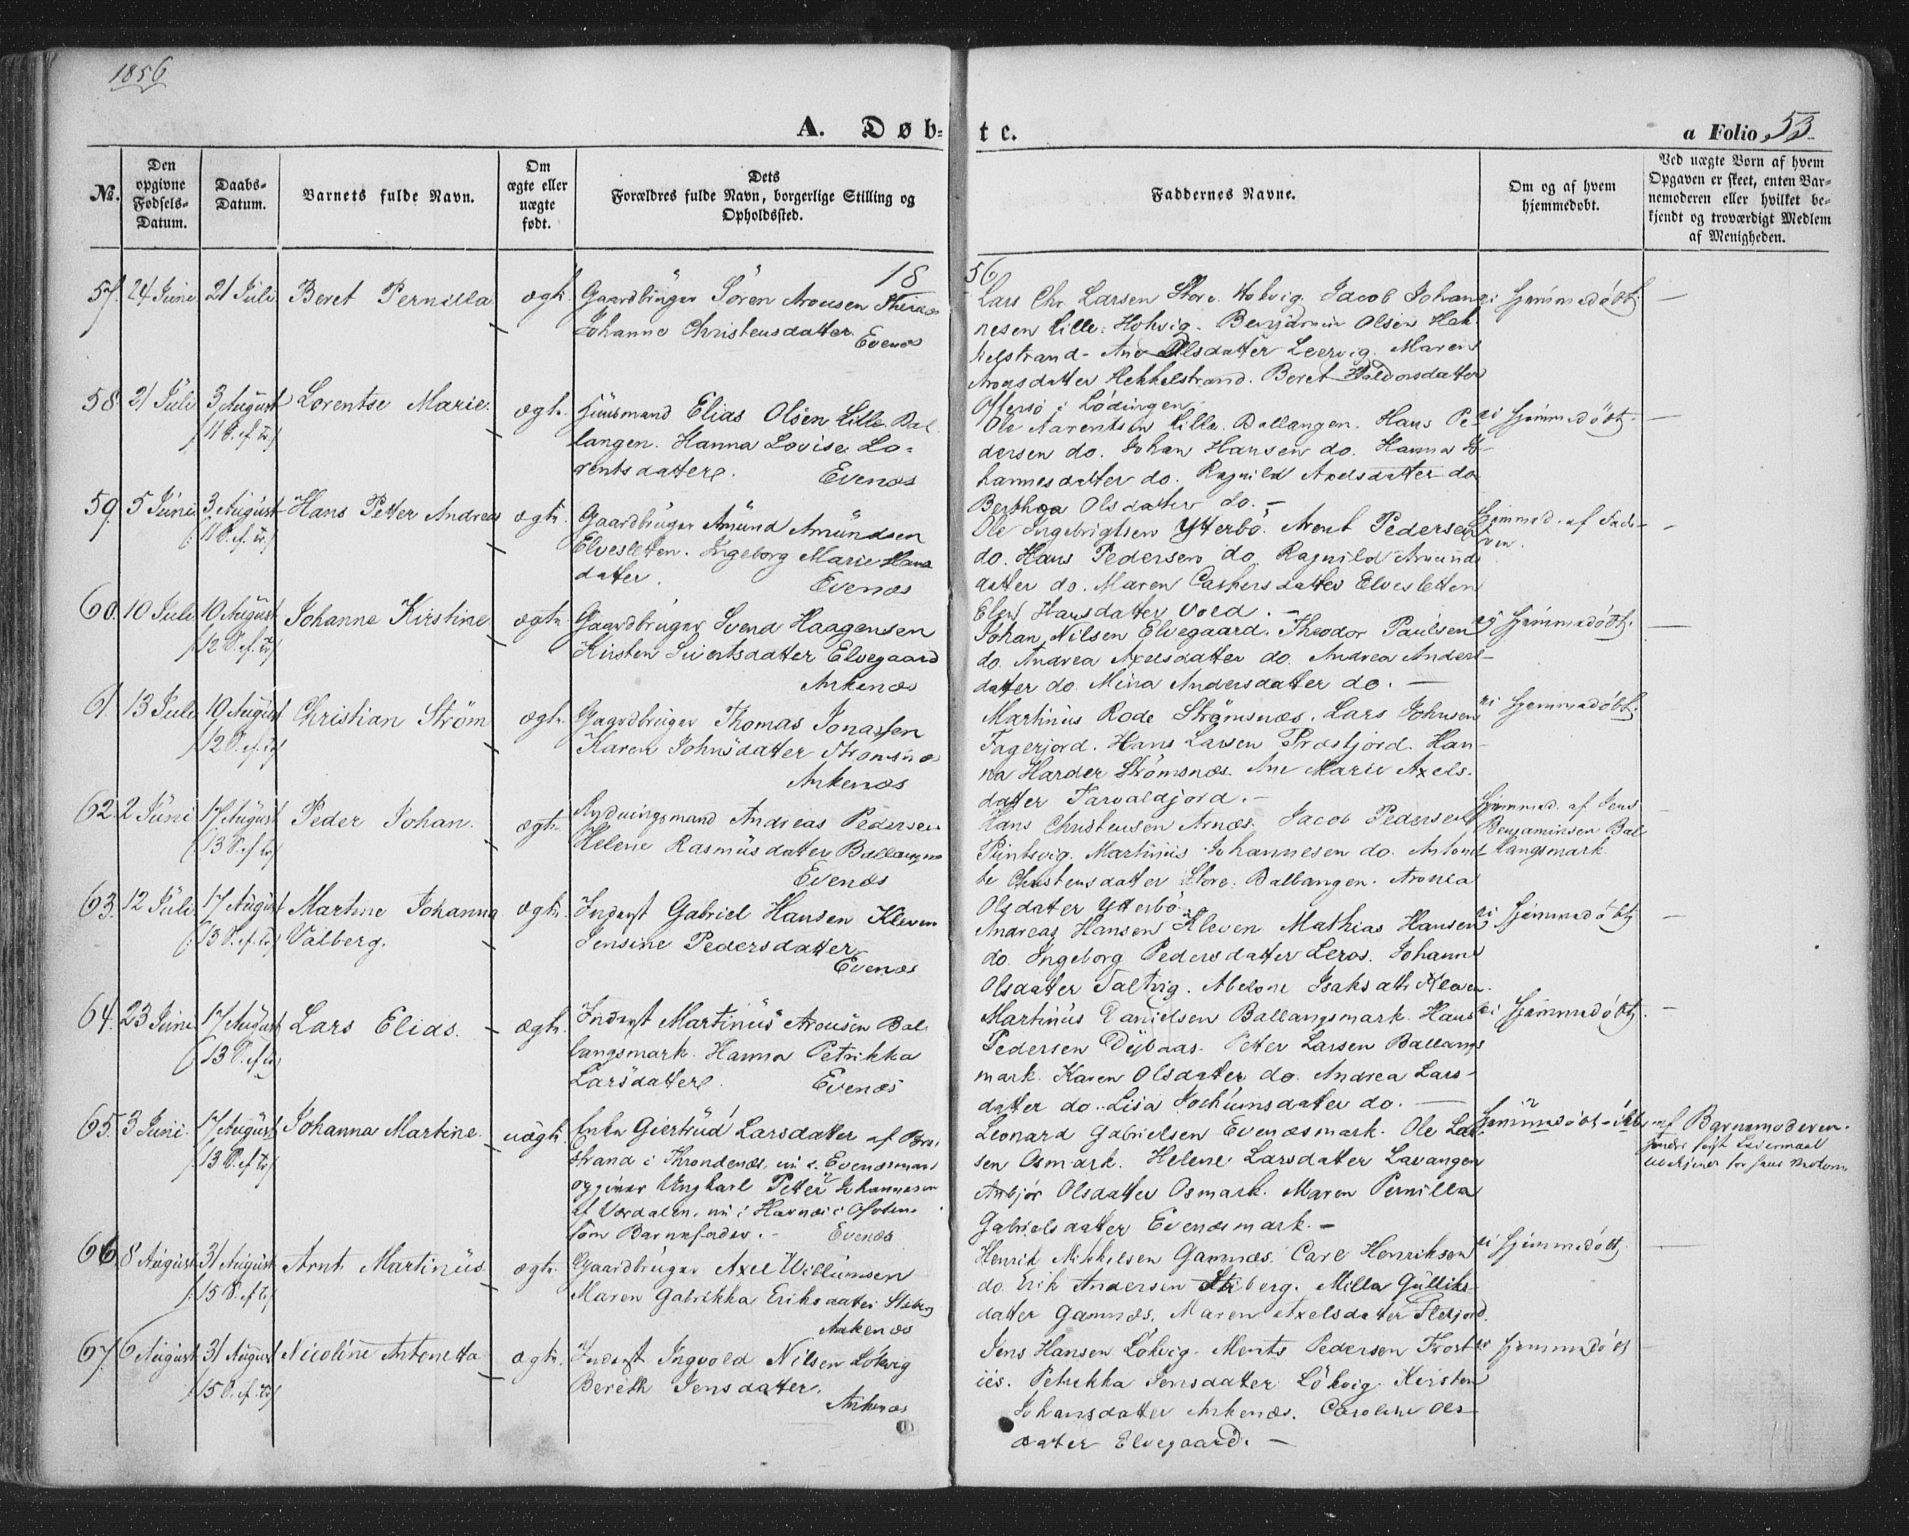 1856
A. Døb-
te.
a Folio 53.
№.
Den opgivne Fødsels-Datum.
Daabs-Datum.
Barnets fulde Navn.
Om ægte eller uægte født.
Dets Forældres fulde Navn, borgerlige Stilling og Opholdssted.
Faddernes Navne.
Om og af hvem hjemmedøbt.
Ved uægte Børn af hvem Opgaven er skeet, enten Barnemoderen eller hvilket bekjendt og troværdigt Medlem af Menigheden.
18
56
57. 24 Juni 21 Juli Beret Pernilla ægte.
Gaardbruger Sören Arousen
Johanne Christensdatter
Evenes
Lars Chr. Larsen Store Hokvig. Jacob Johan-
nesen Lille: Hokvig. Benjamin Olsen Hek-
kelstrand. Ane Olsdatter Leervig. Maren
Aronsdatter Hekkelstrand. Beret Haldorsdatter
Offersö i Lödingen.
ei hjemmedöbt. —
58. 21 Juli 3 August Lorentse Marie. ægte.
(11 S. ef. Tr.)
Huusmand Elias Olsen Lille Bal
langen. Hanna Lovise Lo-
rentsdatter.
Evenæs
Ole Aarentsen Lille Ballangen. Hans Pe-
dersen do. Johan Hansen do. Hanna Jo-
hannesdatter do. Ragnild Axelsdatter do
Berthea Olsdatter do. —
ei hjemmedöbt. —
59. 5 Juni 3 August Hans Petter Andreas ægte.
(11 S. ef. Tr.)
Gaardbruger Amund Amundsen
Elvesletten. Ingeborg Marie Hans
datter.
Evenæs
Ole Ingebrigtsen Ytterbö. Arent Pedersen
do. Hans Pedersen do. Ragnild Amunds
datter do. Maren Caspersdatter Elvesletten
Elen Hansdatter Vold. —
hjemmed. af Fade-
ren. —
60. 10 Juli 10 August Johanne Kirstine ægte
(12 S. ef. Tr.)
Gaardbruger Svend Haagensen
Kirsten Sivertsdatter Elvegaard
Ankenæs
Johan Nilsen Elvegaard. Theodor Paulsen
do. Andrea Axelsdatter do. Andrea Anders-
datter do. Mina Andersdatter do. —
ei hjemmedöbt. —
61. 13 Juli 10 August Christian Ström ægte.
(12 S. ef. Tr.)
Gaardbruger Thomas Jonassen
Karen Johnsdatter Strömsnæs
Ankenæs
Martinus Rode Strömsnæs. Lars Johnsen
Fagerjord. Hans Larsen Præstjord. Han-
na Harder Strömsnæs. Ane Marie Axels-
datter Tarvaldjord. —
ei hjemmedöbt. —
62. 2 Juni 17 August Peder Johan. ægte.
(13 S. ef. Tr.)
Rydningsmand Andreas Pedersen
Helene Rasmusdatter Ballangen
Evenæs
Hans Christensen Arnæs. Jacob Pedersen
Martinus Johannesen do. Antonet
te Christensdatter Store: Ballangen.
Olsdatter Ytterbö.
hjemmed. af Jens
Benjaminsen Bal
langsmark. —
63. 12 Juli 17 August Martine Johanna ægte.
(13 S. ef. Tr.) Valberg.
Inderst Gabriel Hansen Kleven
Jensine Pedersdatter
Evenæs
Andreas Hansen Kleven Mathias Hansen
do. Ingeborg Pedersdatter Leros. Johanna
Olsdatter Taltvig. Abelone Isaksdatt. Kleven.
ei hjemmedöbt —
64. 23 Juni 17 August Lars Elias. ægte.
(13 S. ef. Tr.)
Inderst Martinus Arousen Bal
langsmark. Hanna Petrikka
Larsdatter.
Evenæs
Martinus Danielsen Ballangsmark. Hans
Pedersen Dybaas. Petter Larsen Ballangs
mark. Karen Olsdatter do. Andrea Lars-
datter do. Lisa Jochumsdatter do. —
ei hjemmedöbt. —
65. 3 Juni. 17 August Johanna Martine. uægte.
(13 S. ef. Tr.)
Enke Giertrud Larsdatter af
strand i Throndenæs, nu i Evenæsmark
opgiver Ungkarl Petter Johannesen
af Værdalen, nu i Havnæs i Ofoten
som Barnefader. — Evenæs
Leonard Gabrielsen Evenæsmark. Ole Lar
sen Osmark. Helene Larsdatter Lavangen
Anbjör Olsdatter Osmark. Maren Pernilla
Gabrielsdatter Evenæsmark. —
af Barnemoderen.
66. 8 August 31 August Arnt Martinus ægte.
(15 S. ef. Tr.)
Gaardbruger Axel Willumsen
Maren Gabrikka Eriksdatter Stiberg
Ankenæs
Henrik Mikkelsen Gamnæs. Carl Henriksen
do. Erik Andersen Stiberg. Milla Gulliks-
datter Gamnæs. Maren Axelsdatter
ei hjemmedöbt. —
67. 6 August 31 August Nicoline Antonetta ægte.
(15 S. ef. Tr.)
Inderst Ingvold Nilsen Lökvig
Bereth Jensdatter.
Ankenæs
Jens Hansen Lökvig. Ments Pedersen Frost
iis. Petrikka Jensdatter Lökvig. Kirsten
Johansdatter Ankenæs. Caroline Ols-
datter Elvegaard. —
ei hjemmedöbt —